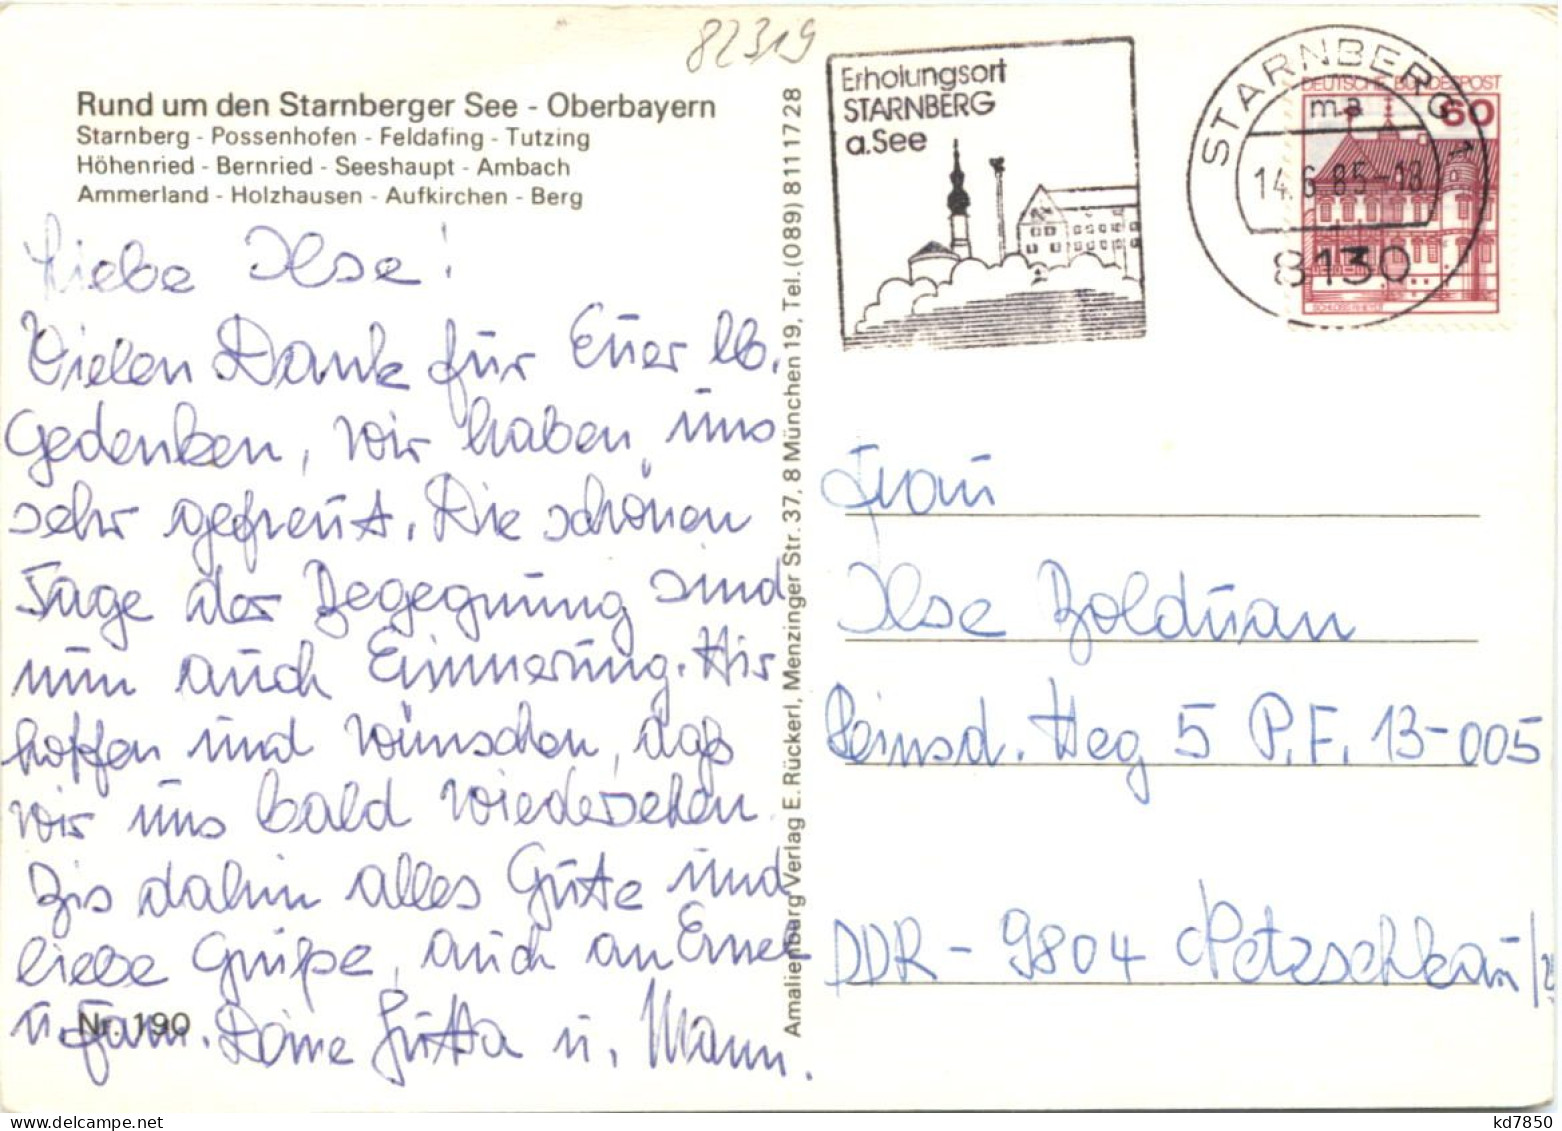 82319
Rund um den Starnberger See - Oberbayern
Starnberg - Possenhofen - Feldafing - Tutzing
Höhenried - Bernried - Seeshaupt - Ambach
Ammerland - Holzhausen - Aufkirchen - Berg
Liebe Ilse!
Vielen Dank für Euer lb.
Gedenken, wir haben uns
sehr gefreut. Die schönen
Tage der Begegnung sind
nun auch Erinnerung. Wir
hoffen und wünschen, daß
wir uns bald wiedersehen.
Bis dahin alles Gute und
liebe Grüße, auch an
u. Fam. Deine Jutta u. Mann.
Nr. 190
Amalienburg Verlag E. Rückerl, Menzinger Str. 37, 8 München 19, Tel. (089) 8111728
Erholungsort
STARNBERG
a.See
STARNBERG 1
ma
14.6.85-18
8130
DEUTSCHE BUNDESPOST
60
SCHLOSS RHEYDT
Frau
Ilse Bolduan
Weg 5 P.F. 13-005
DDR - 9804 Netzschkau/
kd7850